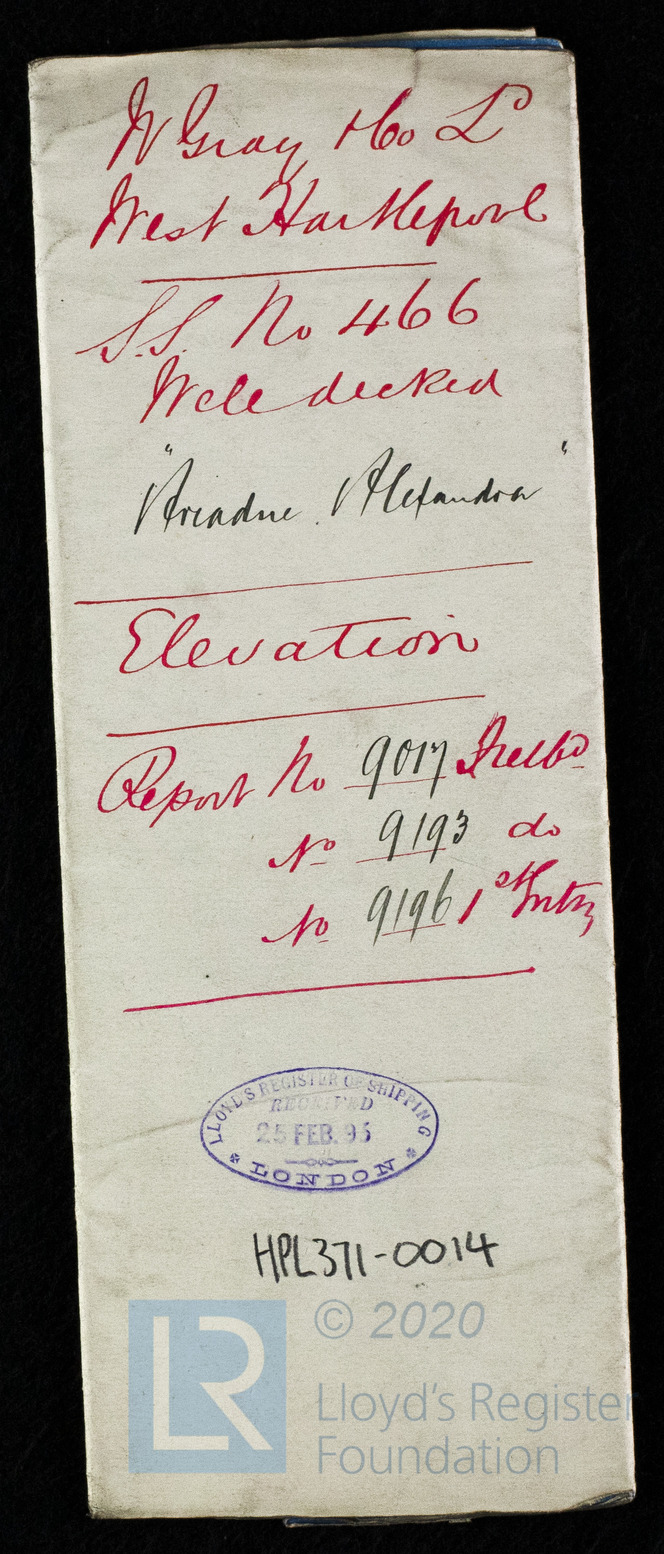 W Gray & Co Ld
West Hartlepool
S.S. No 466
Well decked
"Ariadne Alexandra"
Elevation
Report No 9017 Frebd
No 9193 do
No 9196 1st Entry
LLOYD'S REGISTER OF SHIPPING
RECEIVED
25 FEB. 95
LONDON
HPL371-0014
LR
© 2020
Lloyd's Register
Foundation